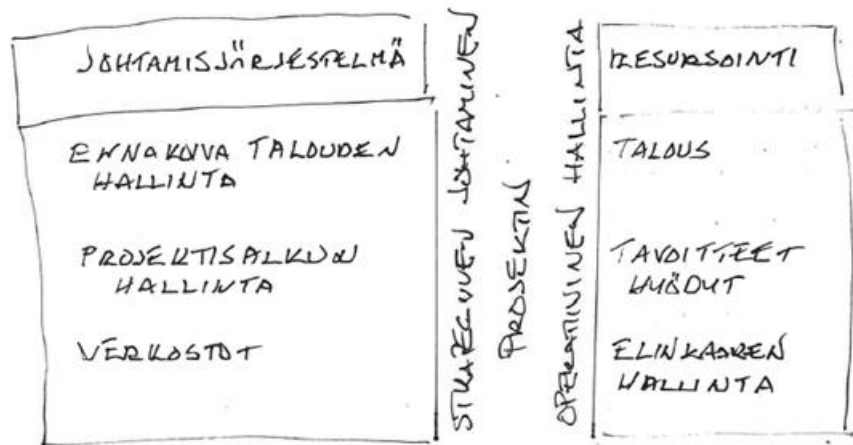 JOHTAMISJÄRJESTELMÄ
ENNAKOIVA TALOUDEN
HALLINTA
PROJEKTISALKUN
HALLINTA
VERKOSTOT
STRATEGINEN JOHTAMINEN
PROJEKTIN
OPERATIIVINEN HALLINTA
RESURSOINTI
TALOUS
TAVOITTEET
HYÖDYT
ELINKAAREN
HALLINTA